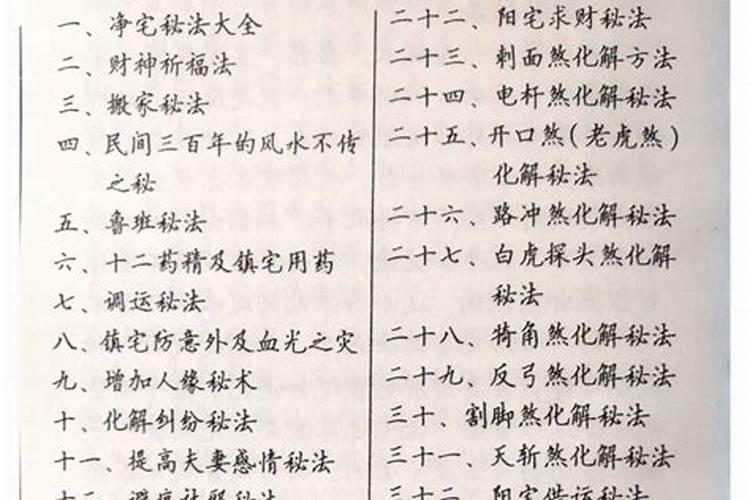 一、净宅秘法大全
二、财神祈福法
三、搬家秘法
四、民间三百年的风水不传
之秘
五、鲁班秘法
六、十二药精及镇宅用药
七、调运秘法
八、镇宅防意外及血光之灾
九、增加人缘秘术
十、化解纠纷秘法
十一、提高夫妻感情秘法
十二、避瘟社邪秘法
二十二、阳宅求财秘法
二十三、刺面煞化解方法
二十四、电杆煞化解秘法
二十五、开口煞(老虎煞)
化解秘法
二十六、路冲煞化解秘法
二十七、白虎探头煞化解
秘法
二十八、犄角煞化解秘法
二十九、反弓煞化解秘法
三十、割脚煞化解秘法
三十一、天斩煞化解秘法
三十二、阳宅催运秘法